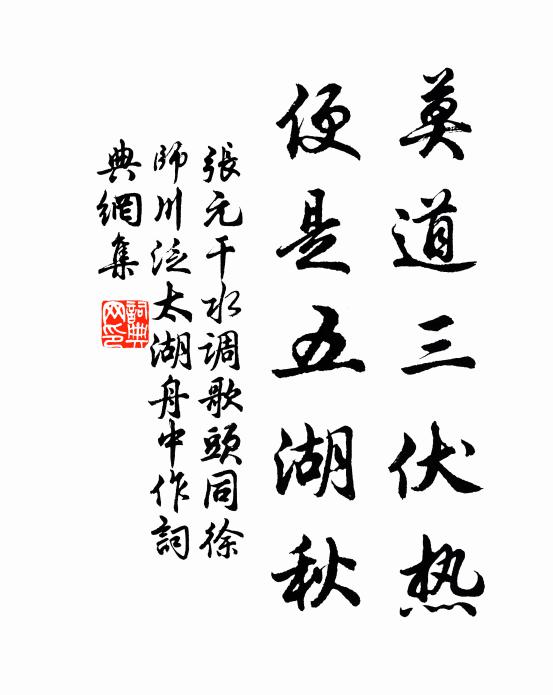 莫道三伏热
便是五湖秋
張元干水调歌頭同徐
師川泛太湖舟中作詞
典網集
詞典網印